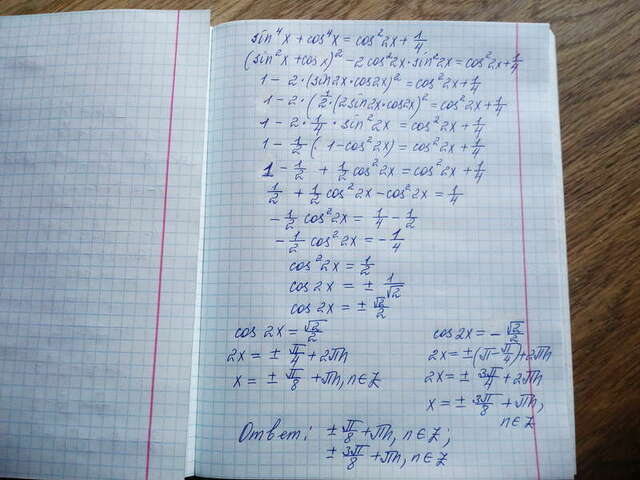 sin⁴x + cos⁴x = cos²2x + 1/4
(sin²x + cosx)² - 2cos²2x·sin²2x = cos²2x + 1/4
1 - 2·(sin2x·cos2x)² = cos²2x + 1/4
1 - 2·(1/2·(2sin2x·cos2x)² = cos²2x + 1/4
1 - 2·1/4·sin²2x = cos²2x + 1/4
1 - 1/2(1-cos²2x) = cos²2x + 1/4
1 - 1/2 + 1/2cos²2x = cos²2x + 1/4
1/2 + 1/2cos²2x - cos²2x = 1/4
-1/2cos²2x = 1/4 - 1/2
-1/2cos²2x = -1/4
cos²2x = 1/2
cos2x = ± 1/√2
cos2x = ± √2/2
cos2x = √2/2
2x = ± π/4 + 2πn
x = ± π/8 + πn, n∈Z
cos2x = - √2/2
2x = ±(π - π/4) + 2πn
2x = ± 3π/4 + 2πn
x = ± 3π/8 + πn,
n∈Z
Ответ: ± π/8 + πn, n∈Z;
± 3π/8 + πn, n∈Z